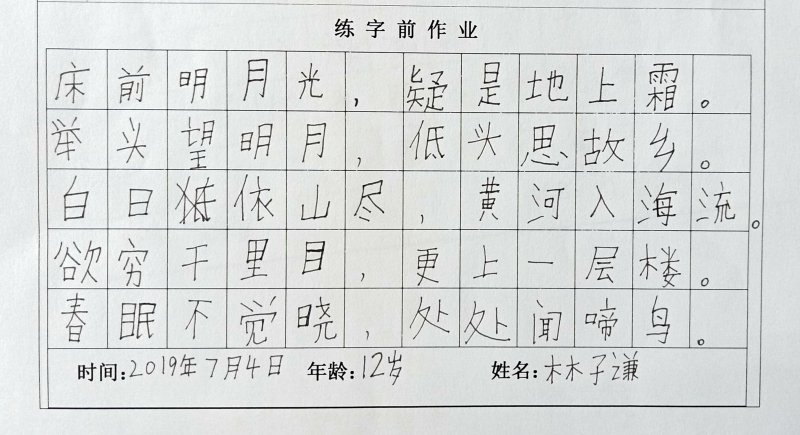 练字前作业
床前明月光，疑是地上霜。
举头望明月，低头思故乡。
白日依山尽，黄河入海流。
欲穷千里目，更上一层楼。
春眠不觉晓，处处闻啼鸟。
时间:2019年7月4日 年龄:12岁 姓名:林子谦